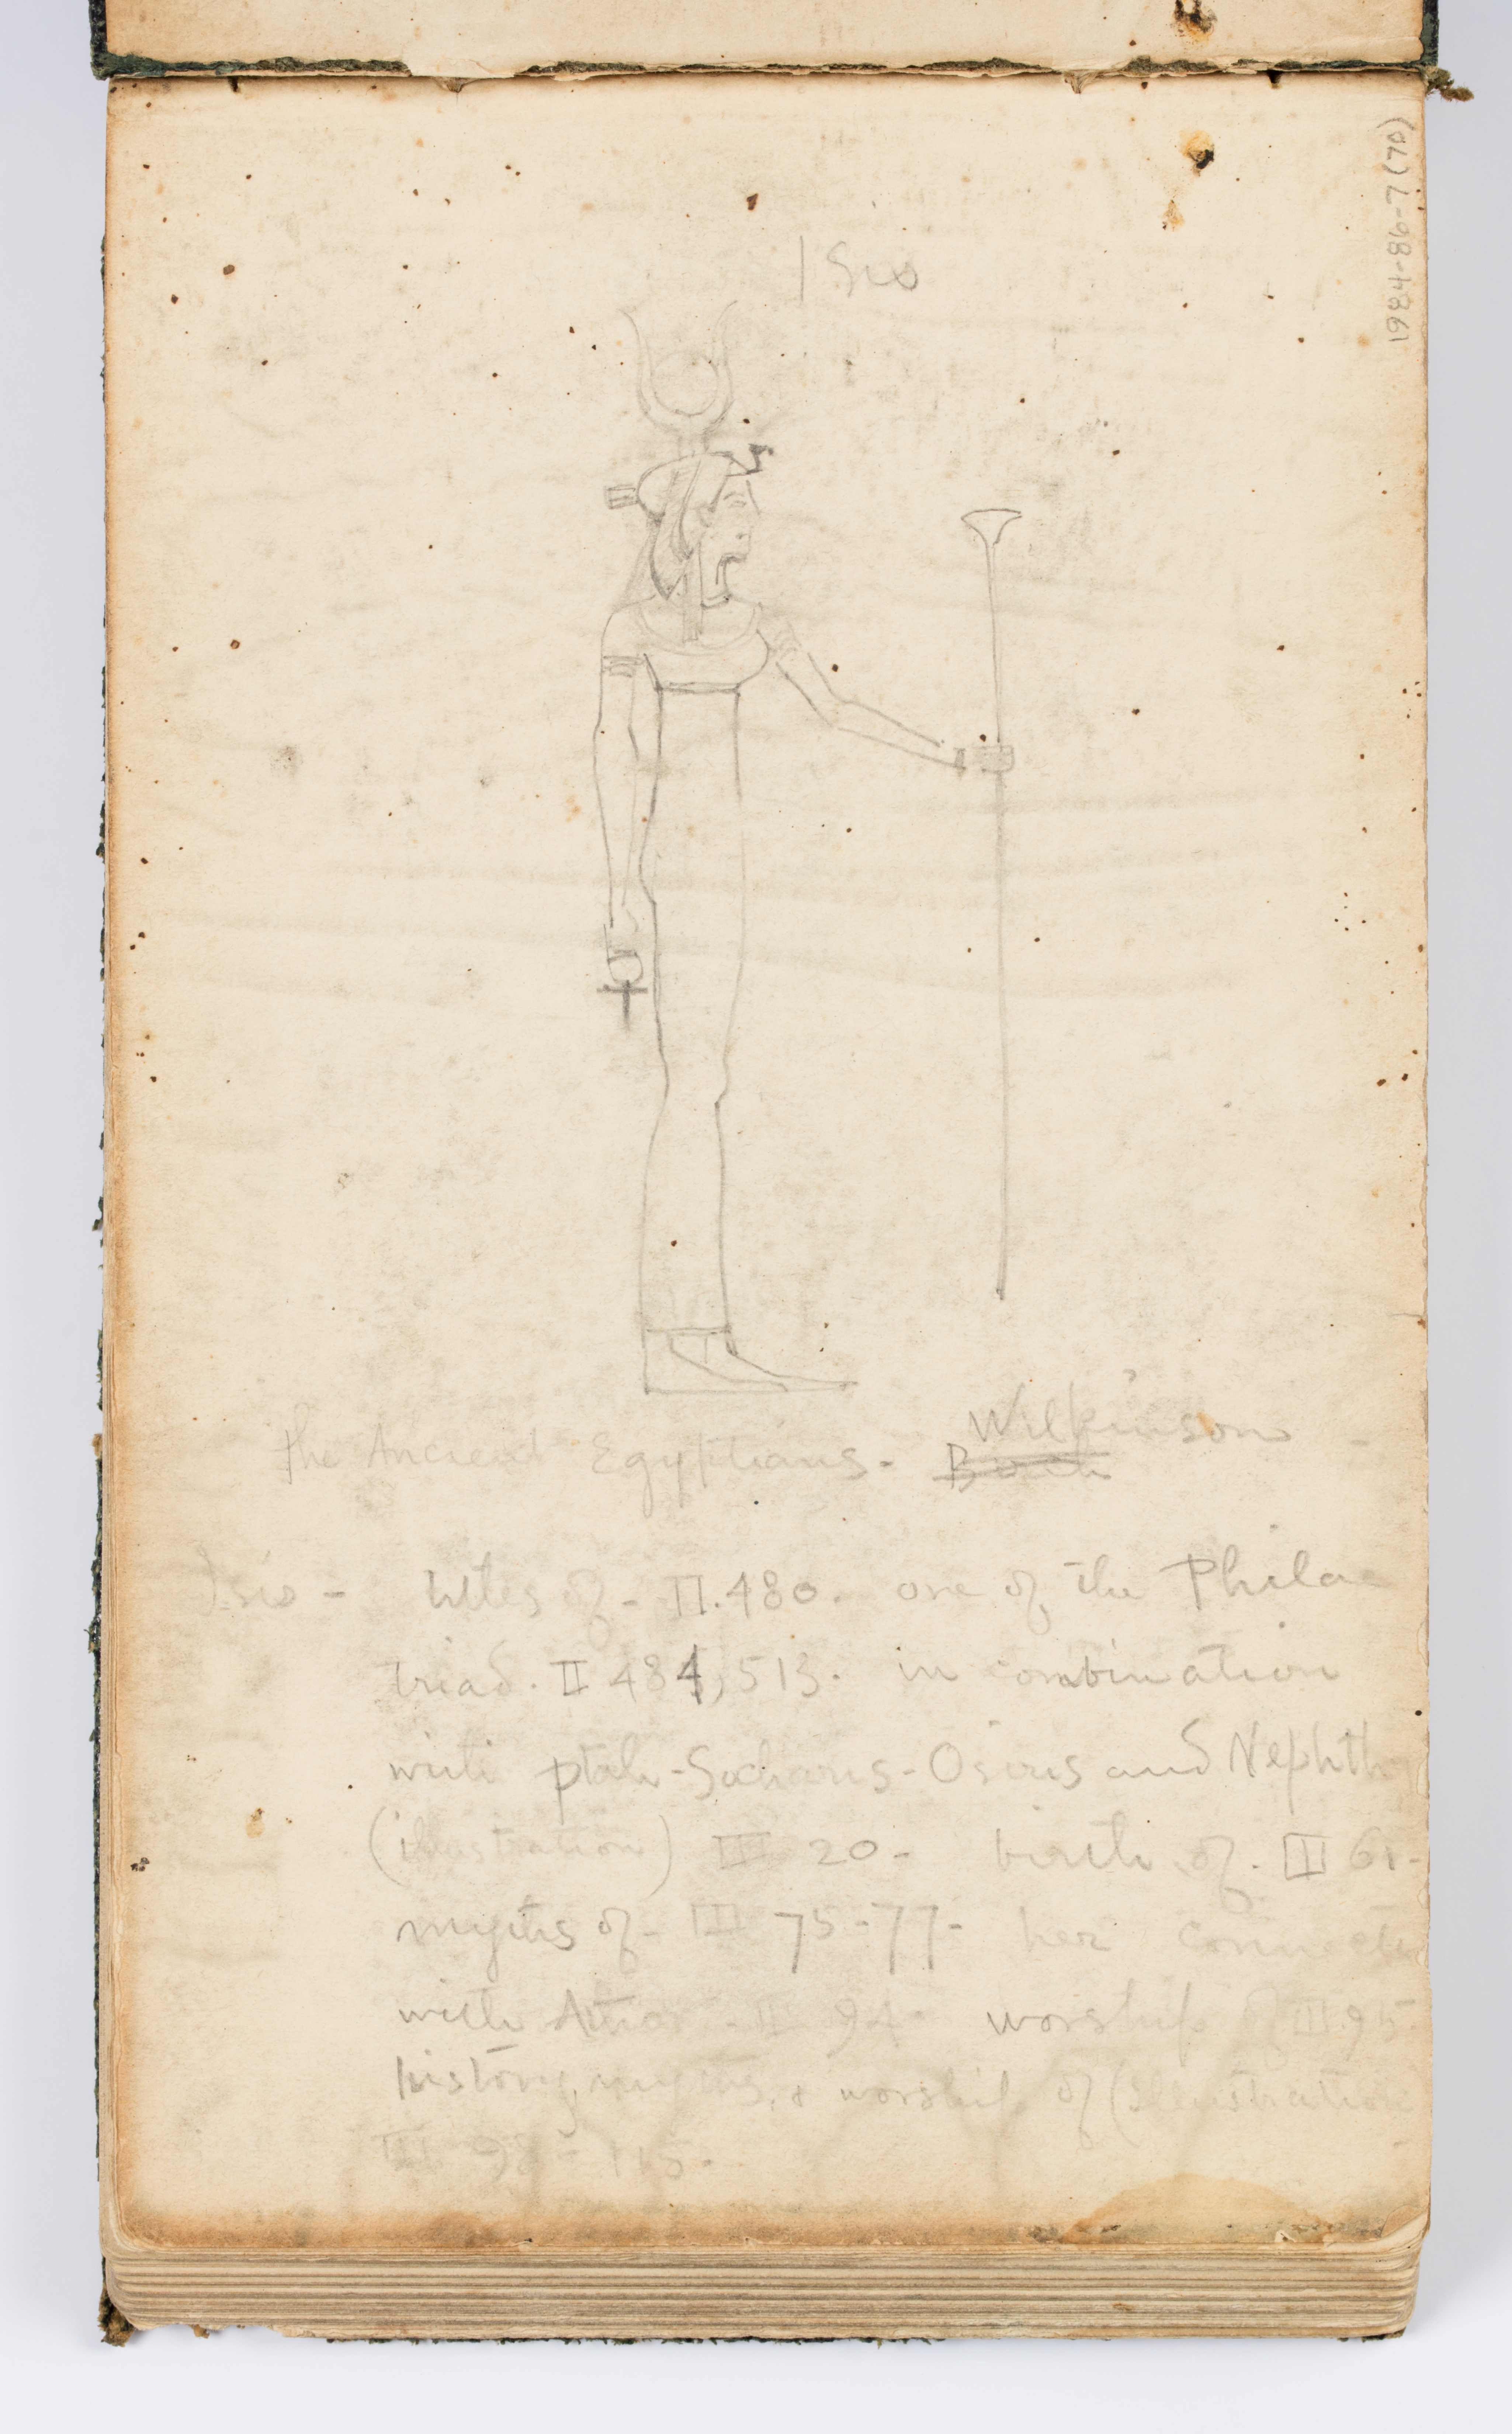 1984-86-7 (70)
Isis
The Ancient Egyptians. Wilkinson -
Isis - titles of - II. 480. one of the Philae
triad. II 484, 513. in combination
with ptah-Socharis-Osiris and Nephth
(illustration) III 20 - birth of. III 61 -
myths of - III 75-77 - her connecti
with Athor - III 94 - worship of III 95
history, myths, & worship of (illustration
III 98 - 115.